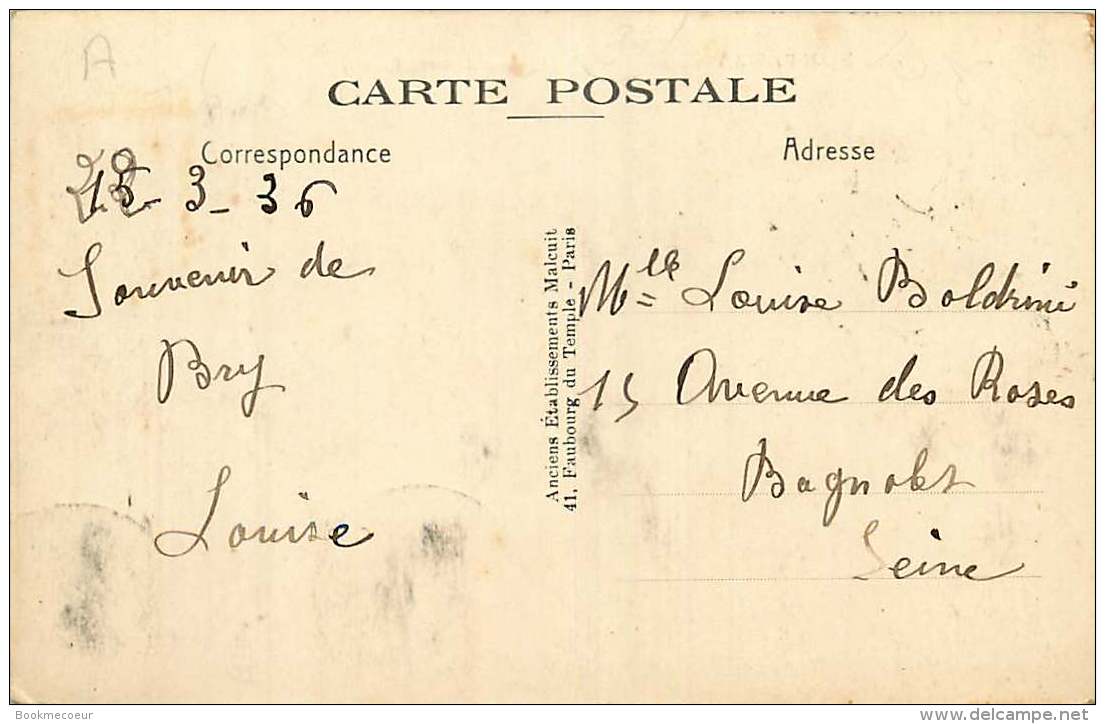 A
CARTE POSTALE
Correspondance
15-3-36
Souvenir de
Bry
Louise
Anciens Établissements Malcuit
41, Faubourg du Temple - Paris
Adresse
Mlle Louise Boldrini
15 Avenue des Roses
Bagnolet
Seine
Bookmecoeur
www.delcampe.net